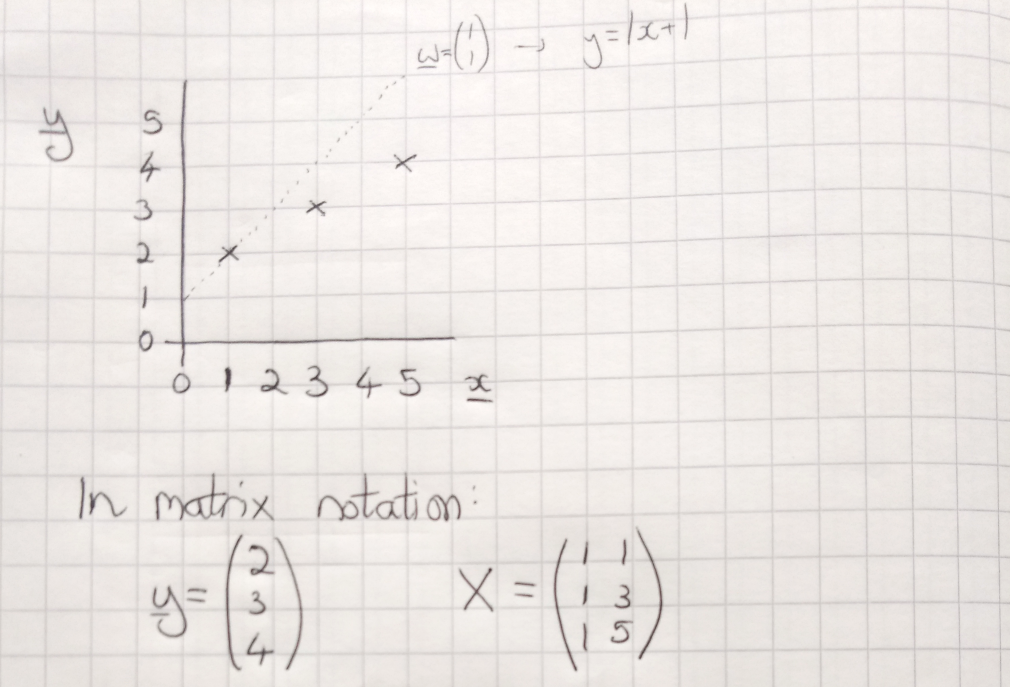 w=(1 1) → y=1x+1
y
5
4
3
2
1
0
0 1 2 3 4 5 x
In matrix notation:
y= (2 3 4) X = (1 1 1 3 1 5)